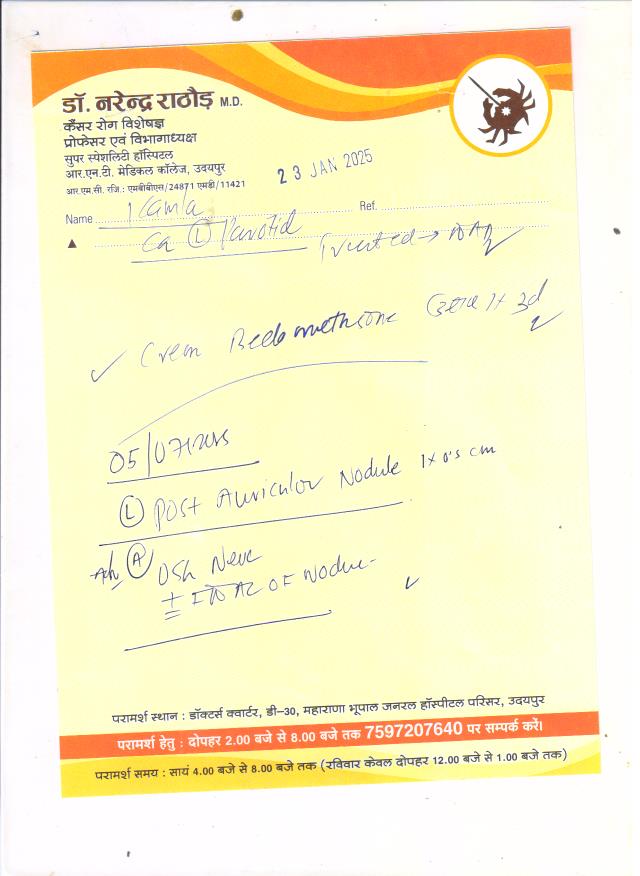 डॉ. नरेन्द्र राठौड़ M.D.
कैंसर रोग विशेषज्ञ
प्रोफेसर एवं विभागाध्यक्ष
सुपर स्पेशलिटी हॉस्पिटल
आर.एन.टी. मेडिकल कॉलेज, उदयपुर
आर.एम.सी. रजि.: एमबीबीएस/24871 एमडी/11421
23 JAN 2025
Name Kamla Ref.
Ca (L) Parotid Treated →
Crem Beclomethsone 3d
05/07/2025
(L) Post Auricular Nodule 1x0.5 cm
Adv (A) USG Neck
± FNAC OF Nodule
परामर्श स्थान : डॉक्टर्स क्वार्टर, डी-30, महाराणा भूपाल जनरल हॉस्पीटल परिसर, उदयपुर
परामर्श हेतु : दोपहर 2.00 बजे से 8.00 बजे तक 7597207640 पर सम्पर्क करें।
परामर्श समय : सायं 4.00 बजे से 8.00 बजे तक (रविवार केवल दोपहर 12.00 बजे से 1.00 बजे तक)